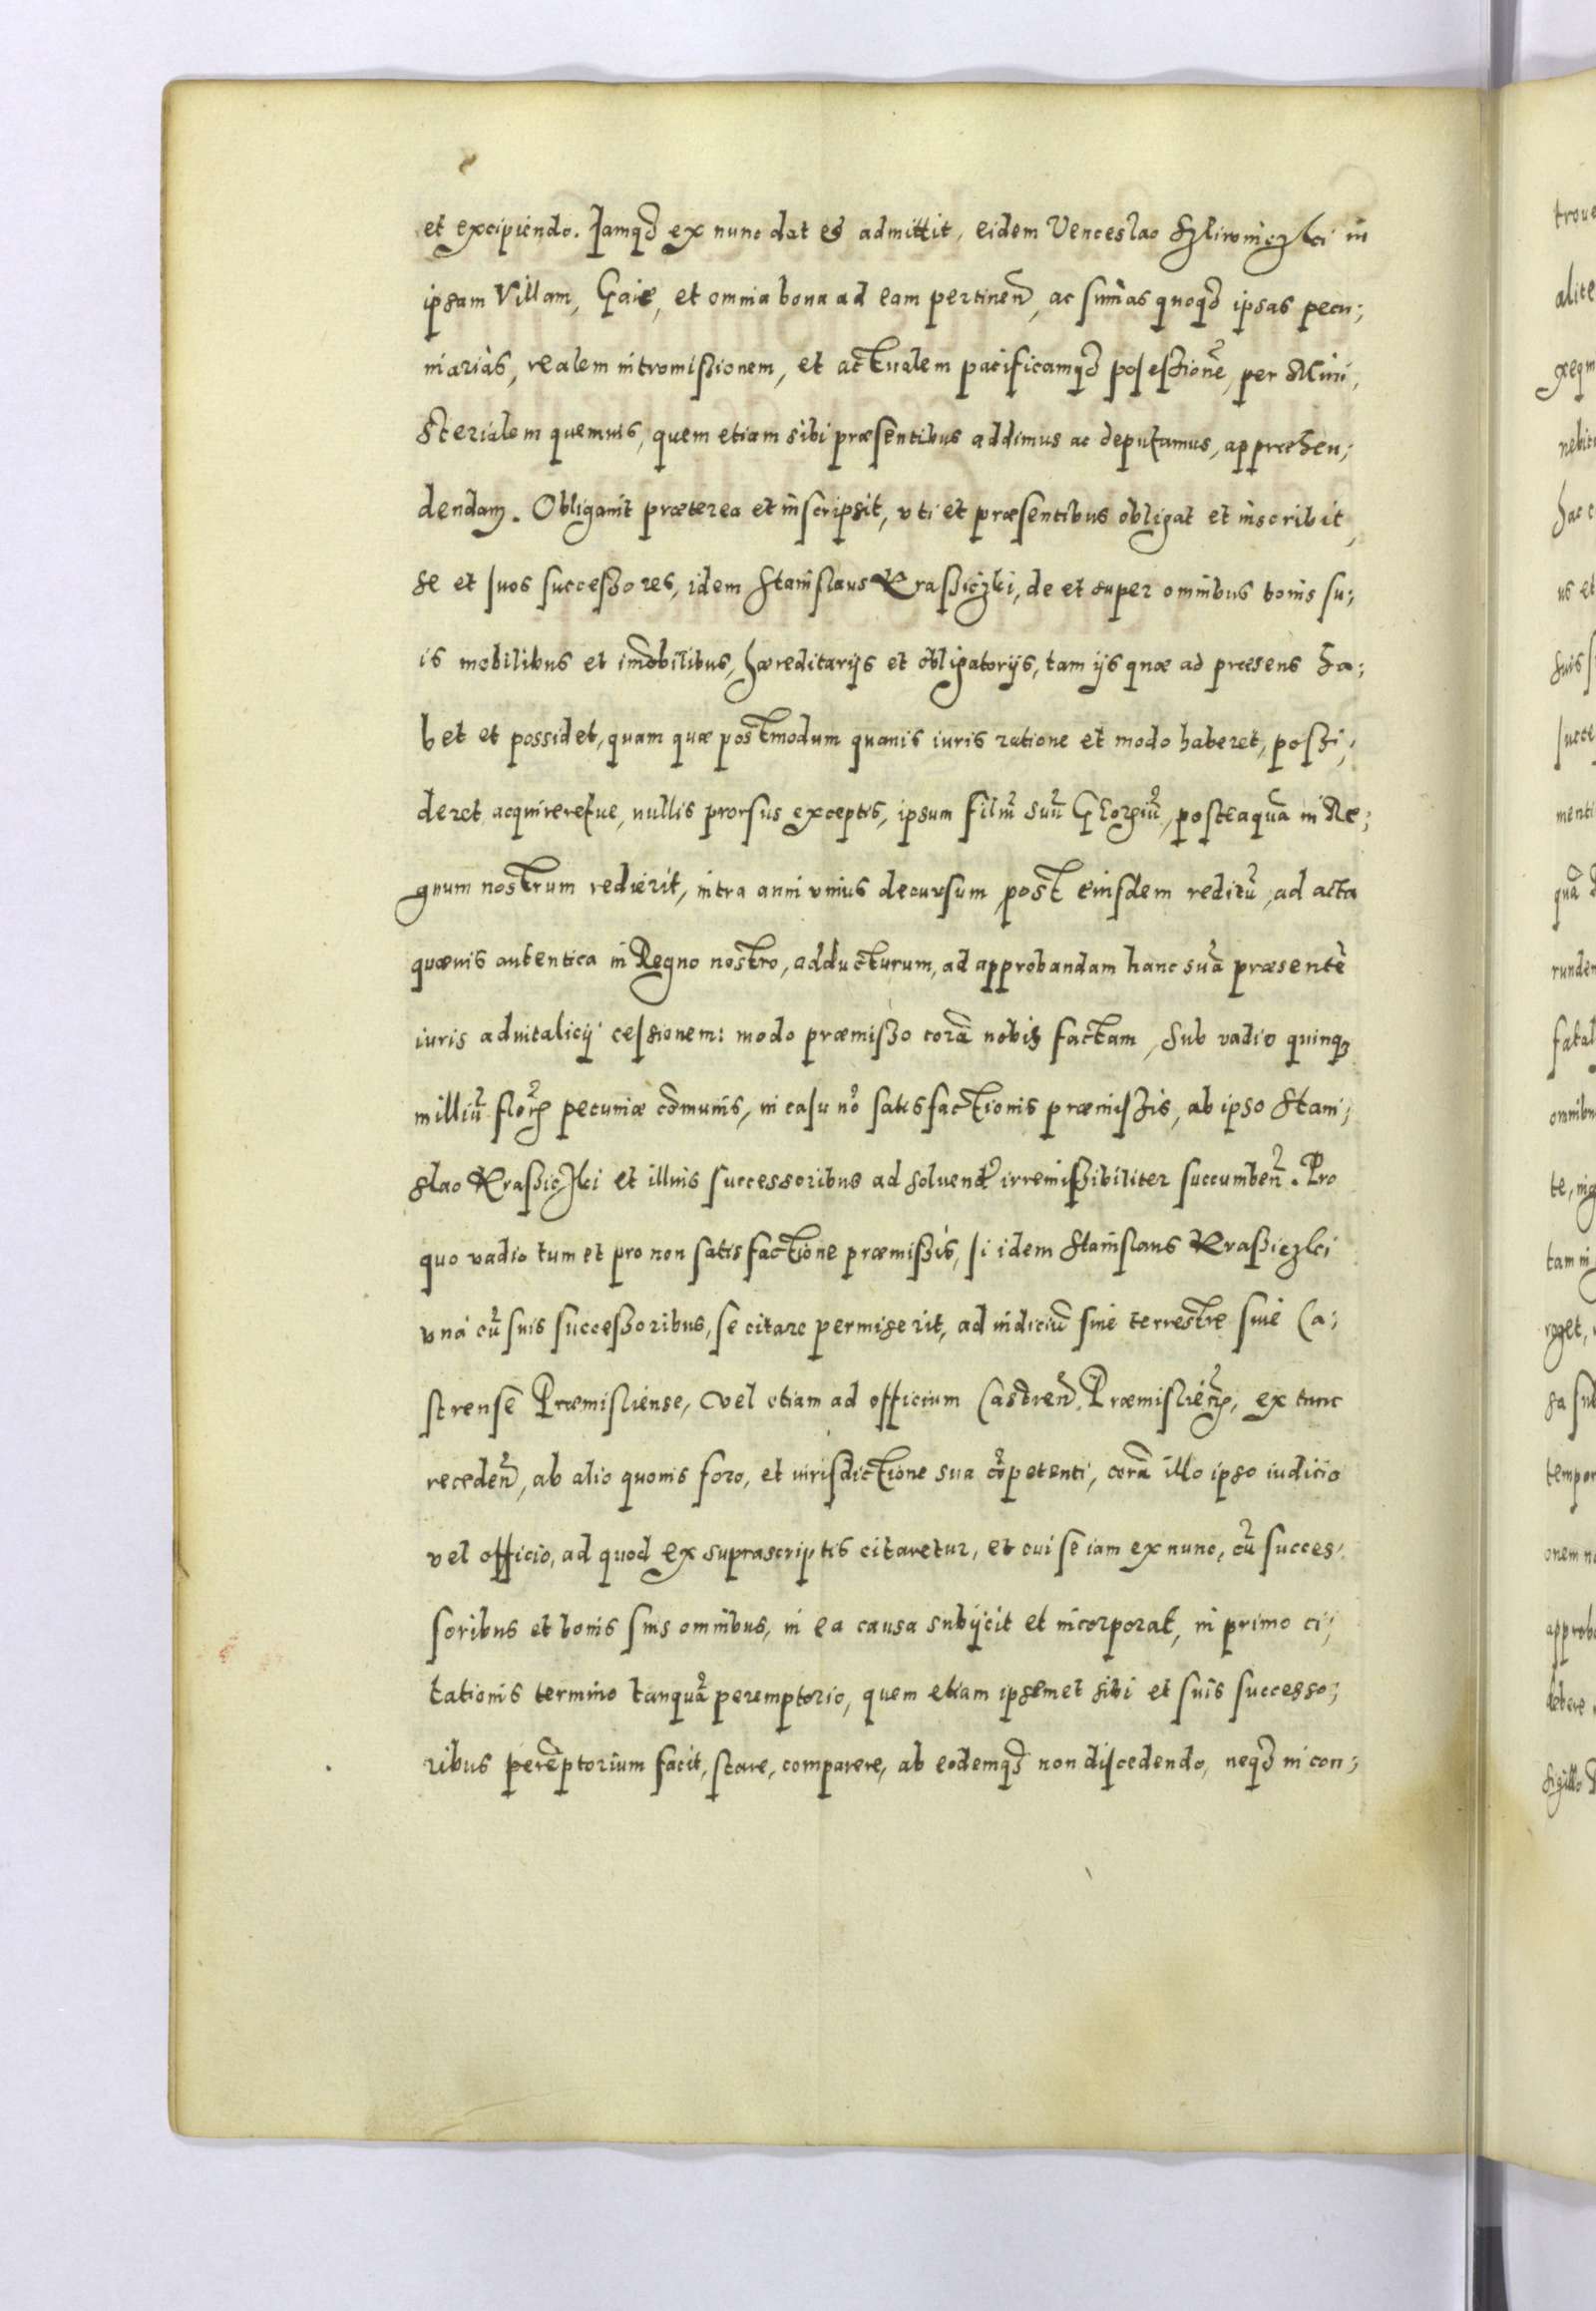 et excipiendo. Iamq₃ ex nunc dat et admittit, eidem Venceslao Szliwniczki in
ipsam Villam, Gaie, et omnia bona ad eam pertinen̄, ac sum̄as quoq₃ ipsas pecu;
niarias, realem intromissionem, et actualem pacificamq₃ possessionē, per Mini;
sterialem quemuis, quem etiam sibi præsentibus addimus ac deputamus, apprehen;
dendam. Obligauit præterea et inscripsit, vti et præsentibus obligat et inscribit,
se et suos successores, idem Stanislaus Krassiczki, de et super omnibus bonis su;
is mobilibus et im̄obilibus, hæreditarijs et obligatorijs, tam ijs quæ ad præsens ha;
bet et possidet, quam quæ postmodum quauis iuris ratione et modo haberet, possi;
deret acquireretue, nullis prorsus exceptis, ipsum filiū suū Georgiū, posteaquā in Re;
gnum nostrum redierit, intra anni vnius decursum, post eiusdem reditū, ad acta
quæuis autentica in Regno nostro, adducturum, ad approbandam hanc suā præsentē
iuris aduitalicij cessionem: modo præmisso corā nobis factam, sub vadio quinq₃
milliū florꝝ pecuniæ com̄unis, in casu nō satisfactionis præmissis, ab ipso Stani;
slao Krassiczki et illius successoribus ad soluend̄ irremissibiliter succumben̄. Pro
quo vadio tum et pro non satisfactione præmissis, si idem Stanislaus Krassiczki
vná cū suis successoribus, se citare permiserit, ad iudiciū siue terrestre siue Ca;
strense Præmisliense, vel etiam ad officium Castren̄. Præmislien̄, ex tunc
receden̄, ab alio quouis foro, et iurisdictione sua cōpetenti, corā illo ipso iudicio
vel officio, ad quod ex suprascriptis citaretur, et cui se iam ex nunc, cū succes;
soribus et bonis suis omnibus, in ea causa subijcit et incorporat, in primo ci;
tationis termino tanquā peremptorio, quem etiam ipsemet sibi et suis successo;
ribus perēptorium facit, stare, comparere, ab eodemq₃ non discedendo, neq₃ in con;